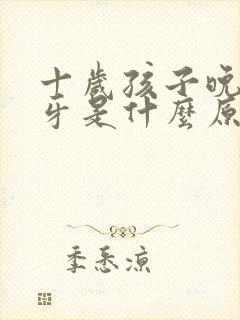 十歲孩子晚
牙是什麼原
季悉涼